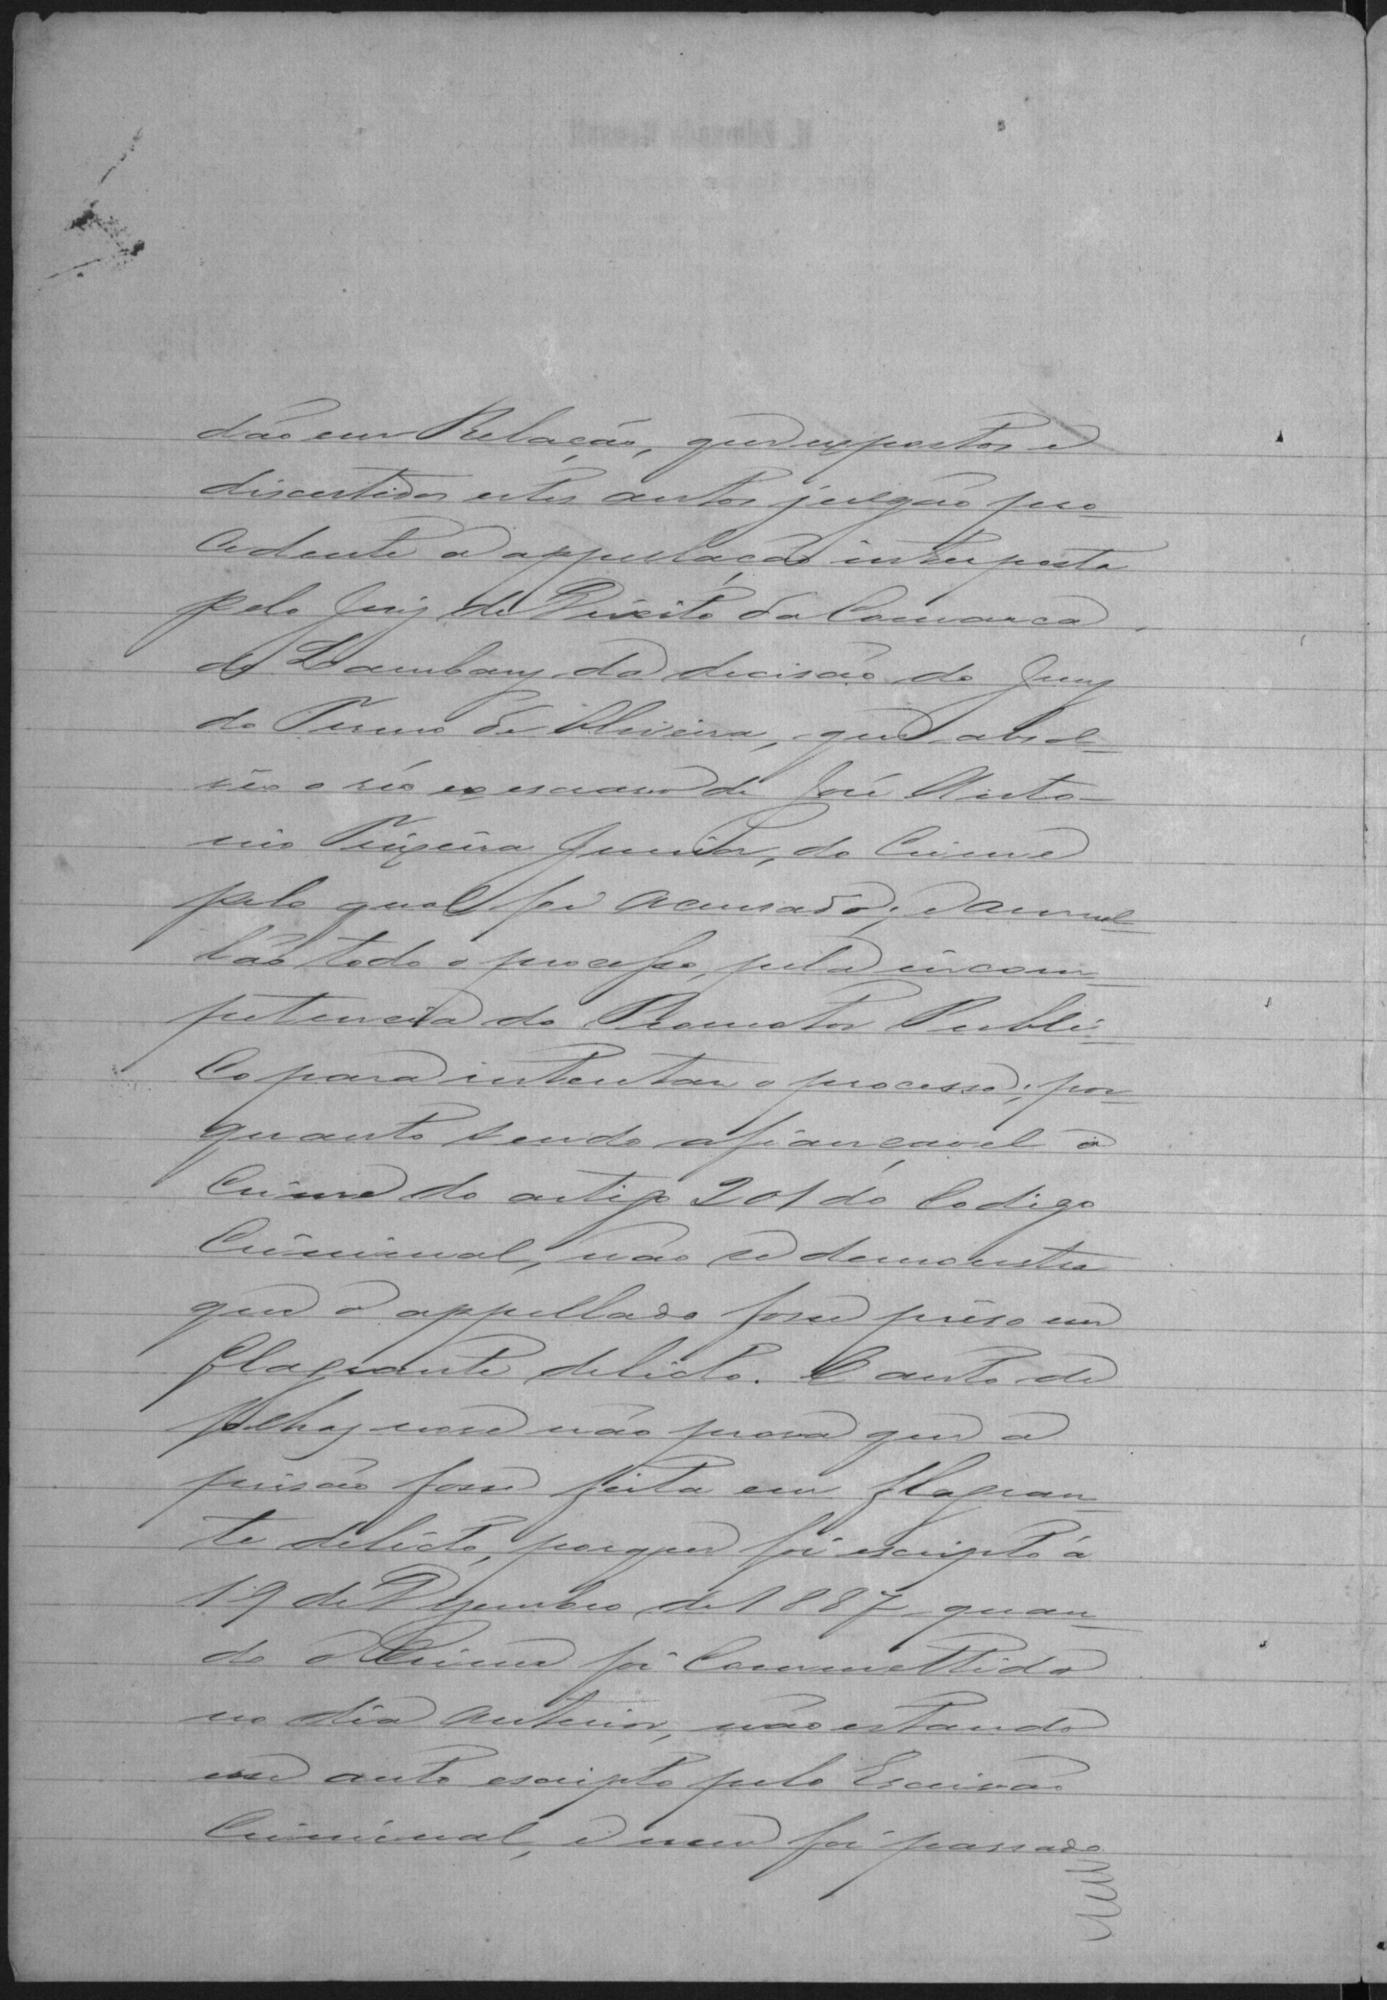 dão em Relação, que expostos e
discutidos estes autos julgão pro-
cedente a appellação interposta
pelo Juiz de Direito da Comarca
de Lambary da decisão do Jury
do Termo de Oliveira, que absol-
veo o réo ex escravo de José Anto-
nio Teixeira Junior, do Crime
pelo qual foi accusado; e annul-
lão todo o processo, pela incom-
petencia do Promotor Publi-
co para intentar o processo; por-
quanto sendo afiançavel o
Crime do artigo 201 do Codigo
Criminal, não se demonstra
que o appellado fosse prêso em
flagrante delicto. O auto de
folhas nove não prova que a
prisão fosse feita em flagran-
te delicto, porque foi escripto á
19 de Dezembro de 1887, quan-
do o Crime foi Commettido
no dia anterior, não estando
esse auto escripto pelo Escrivão
Criminal, e nem foi passado